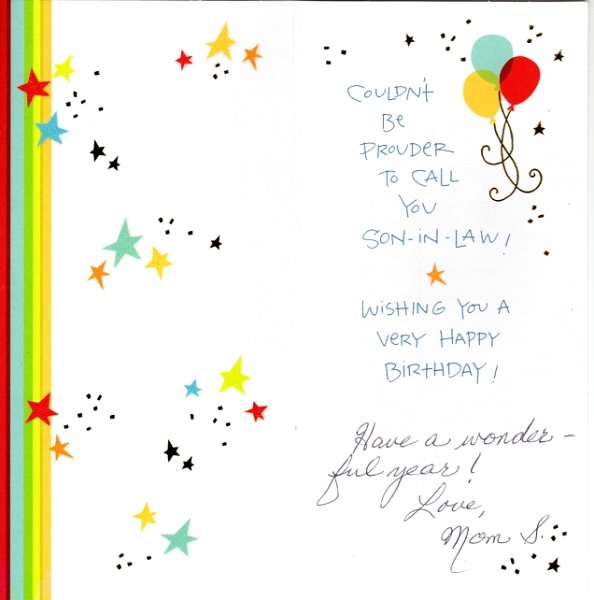 COULDN't
BE
PROUDER
to CALL
YOU
SON-IN-LAW!
WiSHING YOU A
VERY HAPPY
BiRtHDAY!
Have a wonder-
ful year!
Love,
Mom S.